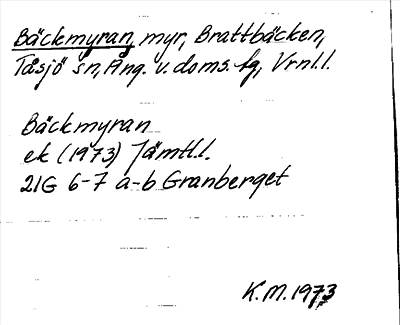 Bäckmyran, myr, Brattbäcken,
Tåsjö sn, Ång. v. doms. fg, Vrnl.l.
Bäckmyran
ek (1973) Jämtl.l.
21G 6-7 a-b Granberget
K.M. 1973